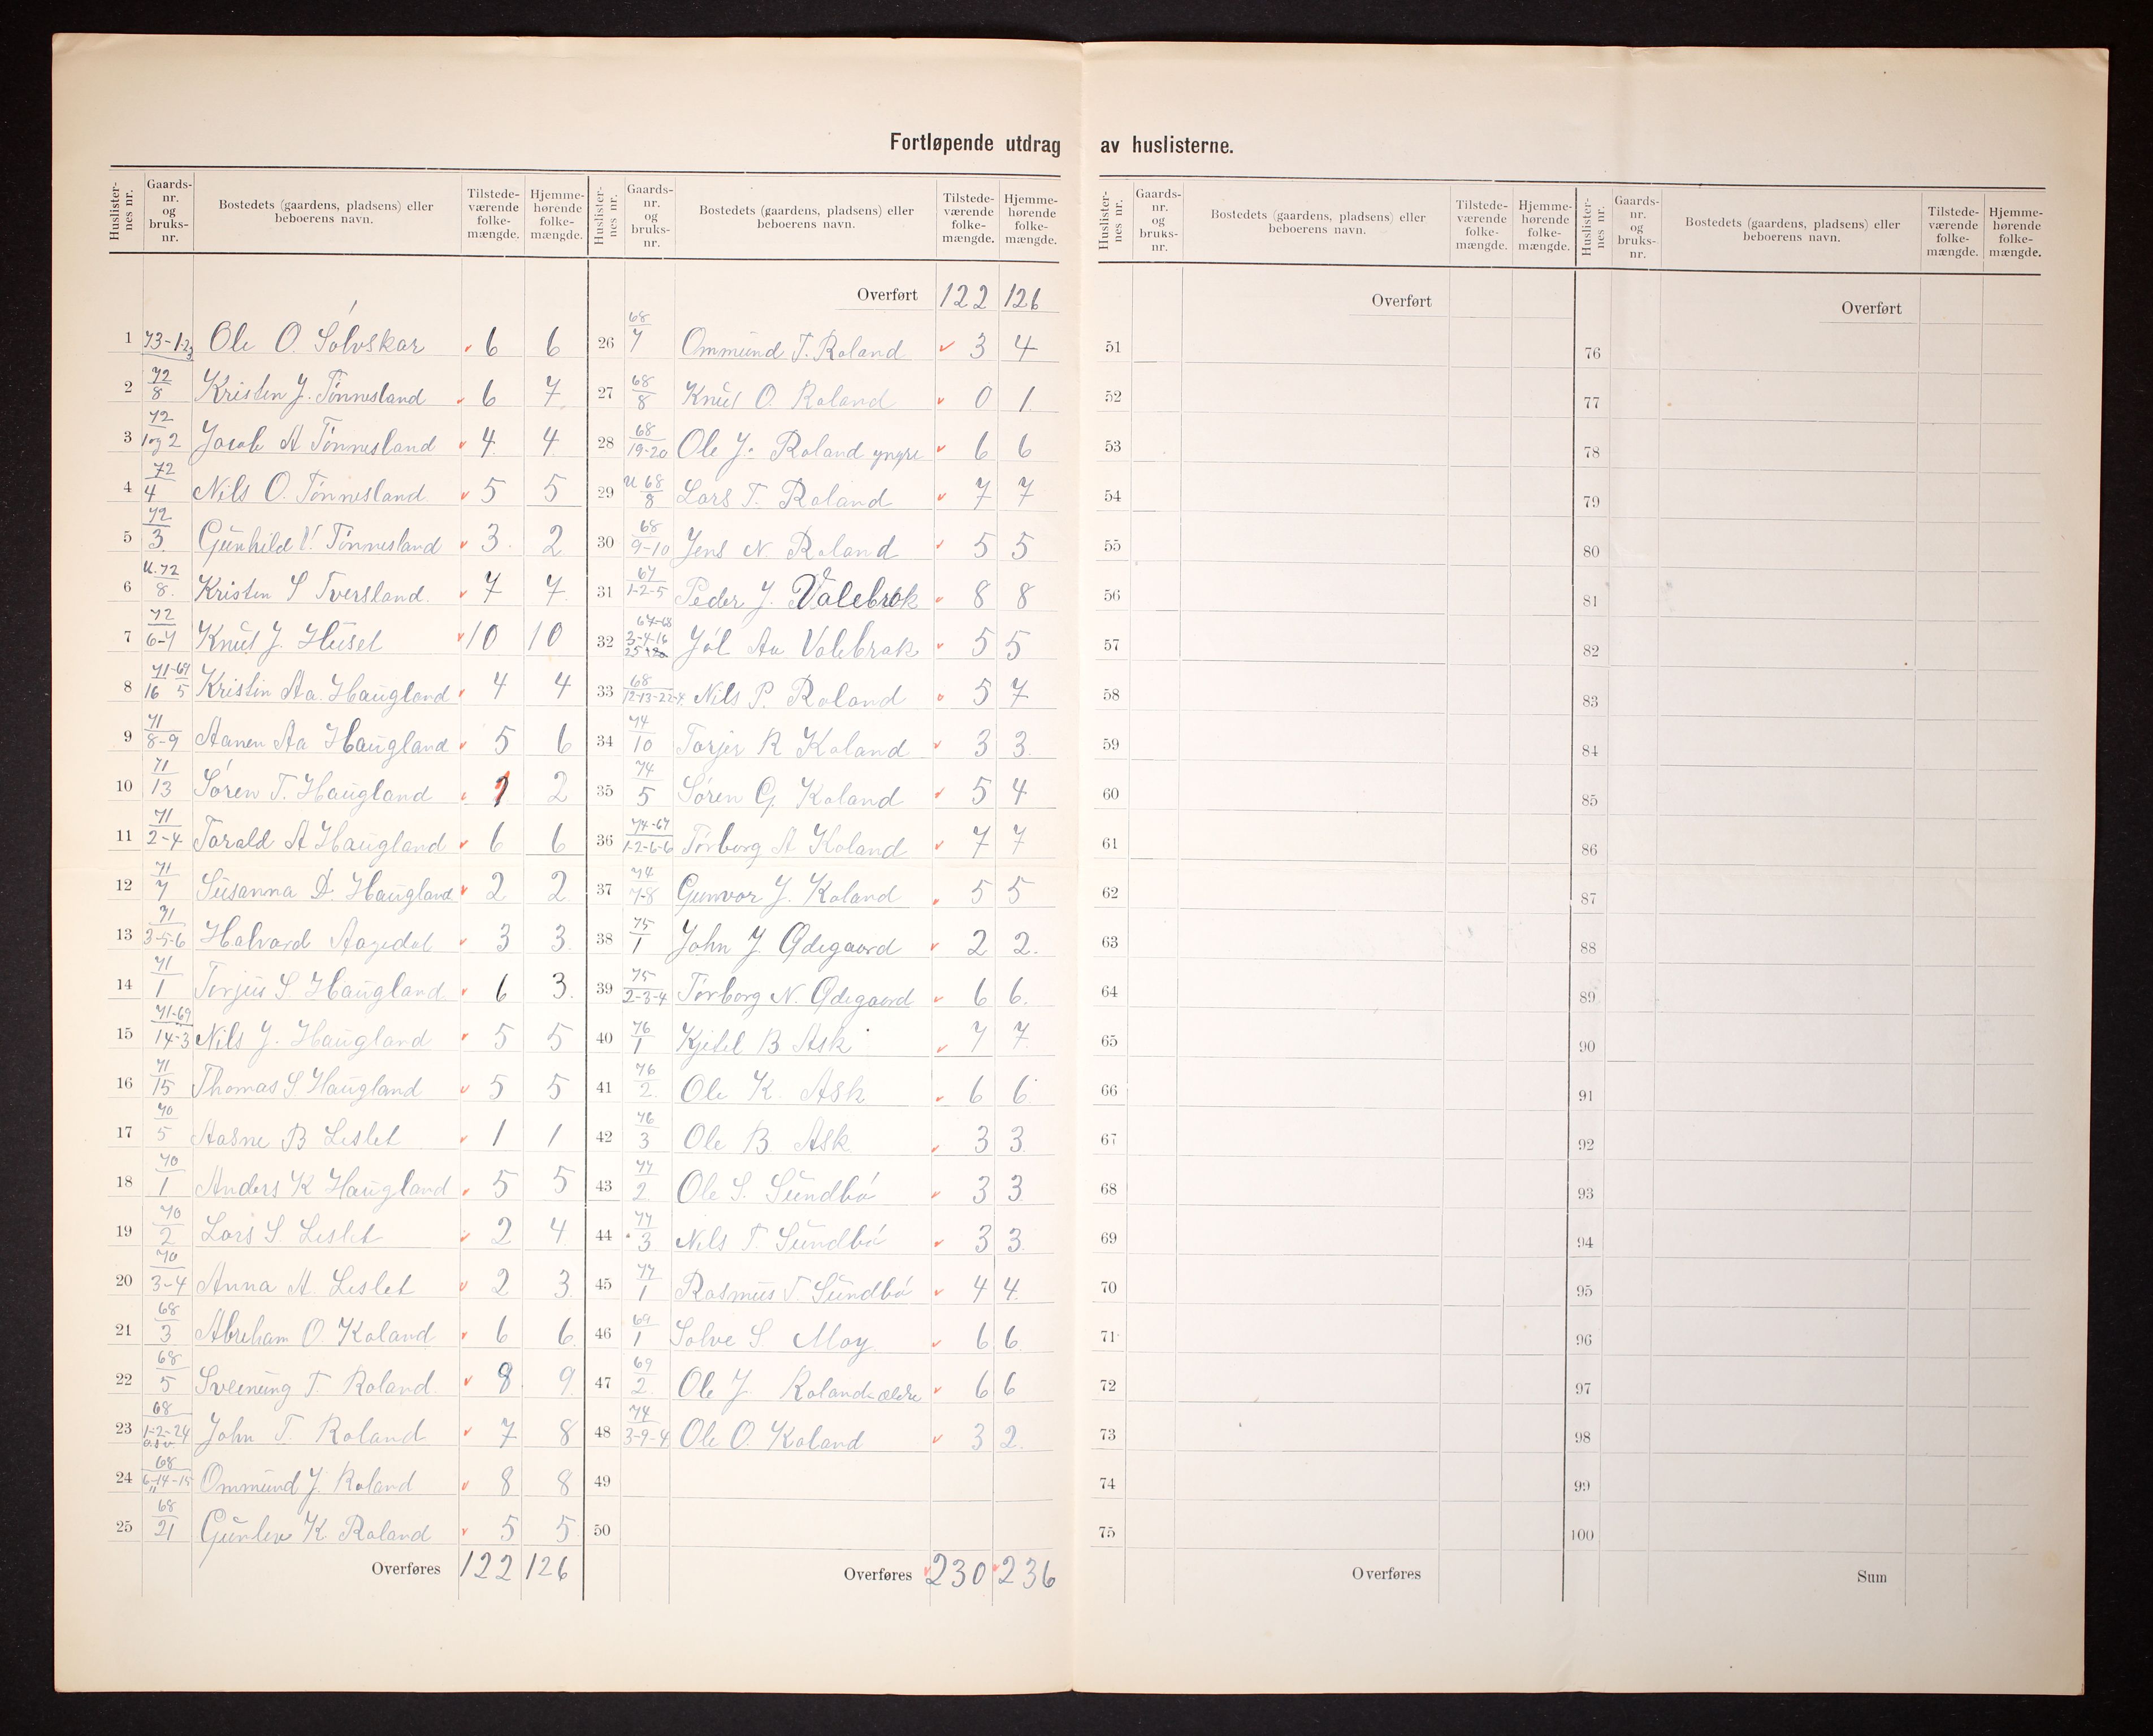 Fortløpende utdrag av huslisterne.
Huslisternes nr. Gaards-nr. og bruks-nr. Bostedets (gaardens, pladsens) eller beboerens navn. Tilstedeværende folkemængde. Hjemmehørende folkemængde.
1 73-1-2-3 Ole O. Sølvskar 6 6
2 72/8 Kristen J. Tønnesland 6 7
3 72/1 og 2 Jacob A Tønnesland 4 4
4 72/4 Nils O. Tønnesland 5 5
5 72/3 Gunhild V. Tønnesland 3 2
6 U. 72/8 Kristen S Tversland 7 7
7 72/6-7 Knut J. Huset 10 10
8 71-69/16 5 Kristin Aa. Haugland 4 4
9 71/8-9 Aanen Aa Haugland 5 6
10 71/13 Søren T. Haugland 1 2
11 71/2-4 Torald A Haugland 6 6
12 71/7 Susanna D. Haugland 2 2
13 71/3-5-6 Halvard Aagedal 3 3
14 71/1 Terjus S Haugland 6 3
15 71-69/14-3 Nils J. Haugland 5 5
16 71/15 Thomas S. Haugland 5 5
17 70/5 Aasne B Leslet 1 1
18 70/1 Anders K Haugland 5 5
19 70/2 Lars S. Leslet 2 4
20 70/3-4 Anna A. Leslet 2 3
21 68/3 Abreham O. Koland 6 6
22 68/5 Sveinung T. Roland 8 9
23 68/1-2-24 o.s.v. John T. Roland 7 8
24 68/6-14-15 Ommund J. Roland 8 8
25 68/21 Gunlev K. Roland 5 5
Overføres 122 126
Huslisternes nr. Gaards-nr. og bruks-nr. Bostedets (gaardens, pladsens) eller beboerens navn. Tilstedeværende folkemængde. Hjemmehørende folkemængde.
Overført 122 126
26 68/7 Ommund T. Roland 3 4
27 68/8 Knut O. Roland 0 1
28 68/19-20 Ole J. Roland yngre 6 6
29 U 68/8 Lars T. Roland 7 7
30 68/9-10 Jens N Roland 5 5
31 67/1-2-5 Peder J. Valebrok 8 8
32 67-68/3-4-16 Jøl Aa Valebrok 5 5
33 68/12-13-22 Nils P. Roland 5 7
34 74/10 Torjer R Koland 3 3
35 74/5 Søren G. Koland 5 4
36 74-67/1-2-6-6 Torborg A Koland 7 7
37 74/7-8 Gunvor J. Koland 5 5
38 75/1 John J. Ødegaard 2 2
39 75/2-3-4 Torborg N. Ødegaard 6 6
40 76/1 Kjetel B Ask 7 7
41 76/2 Ole K. Ask 6 6
42 76/3 Ole B. Ask 3 3
43 77/2 Ole S. Sundbø 3 3
44 77/3 Nils T. Sundbø 3 3
45 77/1 Rasmus T. Sundbø 4 4
46 69/1 Solve S. Moy 6 6
47 69/2 Ole J. Roland ældre 6 6
48 74/3-9-4 Ole O. Koland 3 2
49
50
Overføres 230 236
Huslisternes nr. Gaards-nr. og bruks-nr. Bostedets (gaardens, pladsens) eller beboerens navn. Tilstedeværende folkemængde. Hjemmehørende folkemængde.
Overført
51
52
53
54
55
56
57
58
59
60
61
62
63
64
65
66
67
68
69
70
71
72
73
74
75
Overføres
Huslisternes nr. Gaards-nr. og bruks-nr. Bostedets (gaardens, pladsens) eller beboerens navn. Tilstedeværende folkemængde. Hjemmehørende folkemængde.
Overført
76
77
78
79
80
81
82
83
84
85
86
87
88
89
90
91
92
93
94
95
96
97
98
99
100
Sum